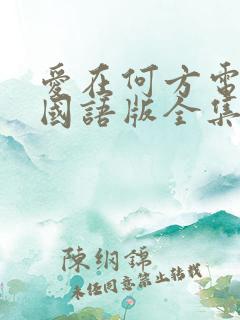 愛在何方電
國語版全集
陳綱錦
未经同意禁止转载